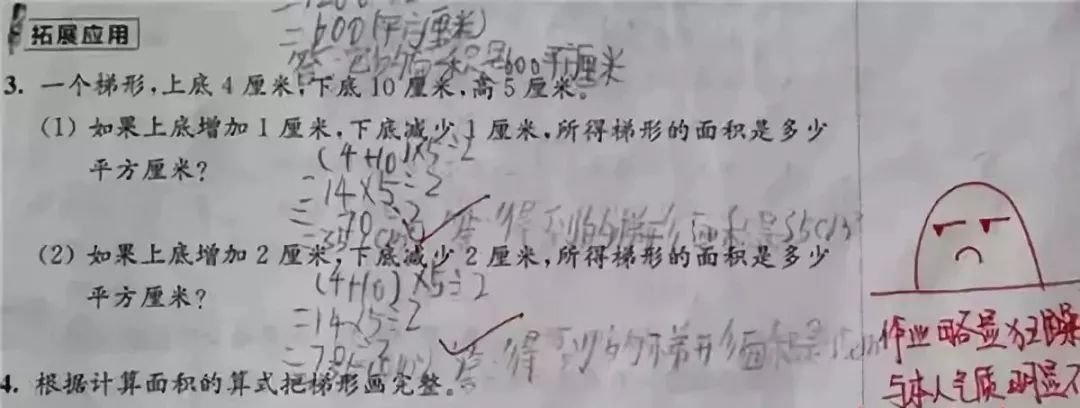 =600(平方厘米)
拓展应用
600平方厘米
3. 一个梯形,上底 4 厘米,下底 10 厘米,高 5 厘米。
(1) 如果上底增加 1 厘米,下底减少 1 厘米,所得梯形的面积是多少
平方厘米?
(4+10)×5÷2
=14×5÷2
=70÷2
答:得到的梯形面积是35cm²
(2) 如果上底增加 2 厘米,下底减少 2 厘米,所得梯形的面积是多少
平方厘米?
(4+10)×5÷2
=14×5÷2
=70÷2
答:得到的梯形面积是
作业略显狂躁
与本人气质明显不
4. 根据计算面积的算式把梯形画完整。